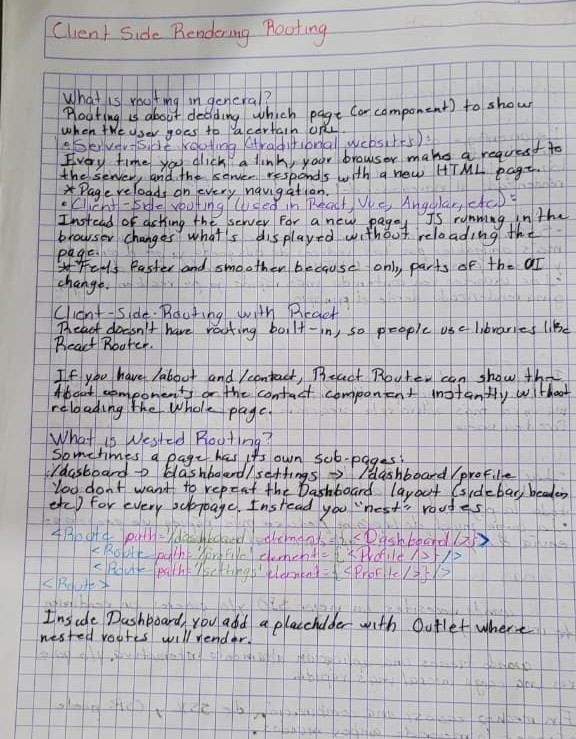 Client Side Rendering Routing
What is routing in general?
Routing is about deciding which page (or component) to show
when the user goes to a certain URL.
• Server-Side routing (traditional websites):
Every time you click a link, your browser makes a request to
the server, and the server responds with a new HTML page.
* Page reloads on every navigation.
• Client-Side routing (used in React, Vue, Angular, etc):
Instead of asking the server for a new page, JS running in the
browser changes what's displayed without reloading the
page.
* Feels faster and smoother because only parts of the UI
change.
Client-Side Routing with React
React doesn't have routing built-in, so people use libraries like
React Router.
If you have /about and /contact, React Router can show the
About components or the contact component instantly without
reloading the whole page.
What is Nested Routing?
Sometimes a page has its own sub-pages:
/dasboard → dashboard/settings → /dashboard/profile
You dont want to repeat the Dashboard layout (sidebar, header
etc) for every subpage. Instead you "nest" routes
<Route path="/dashboard" element={<Dashboard/>}>
<Route path="/profile" element={<Profile/>}/>
<Route path="/settings" element={<Profile/>}/>
<Route>
Inside Dashboard, you add a placeholder with Outlet where
nested routes will render.